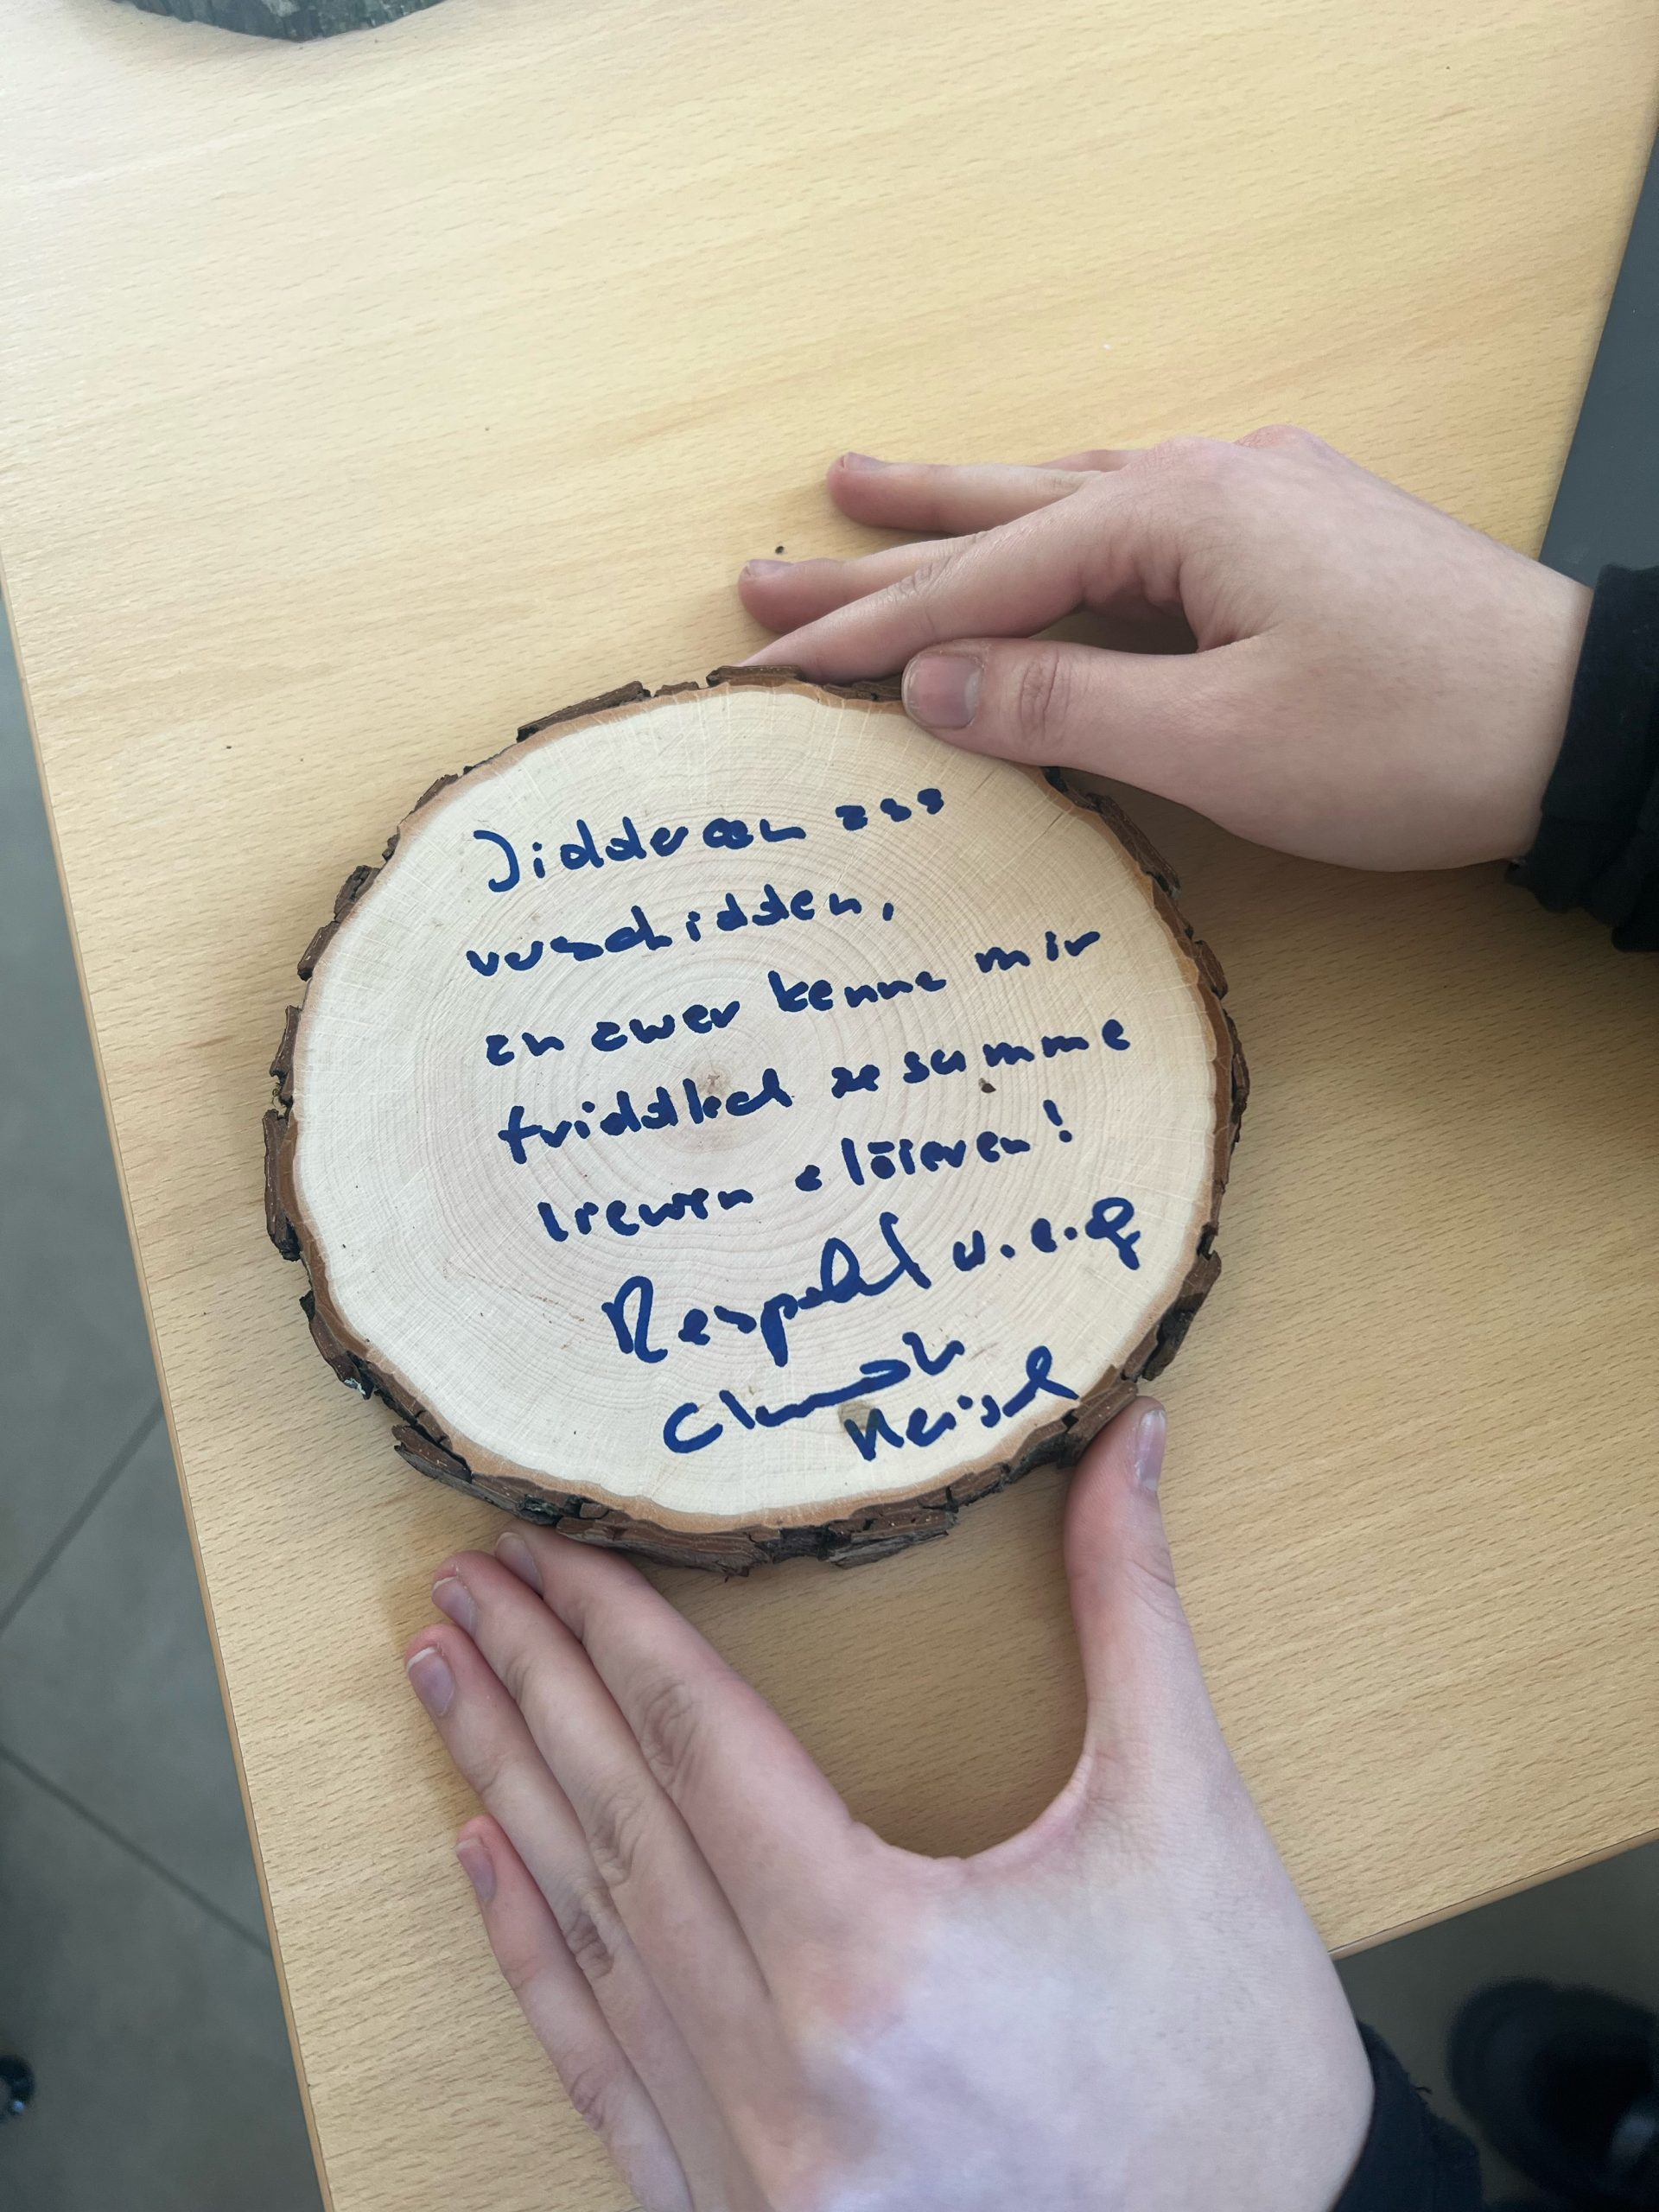 Jiddereen ass
verschidden,
an awer kenne mir
friddlech zesumme
liewen a léieren!
Respekt w.e.g
Claude
Meisch